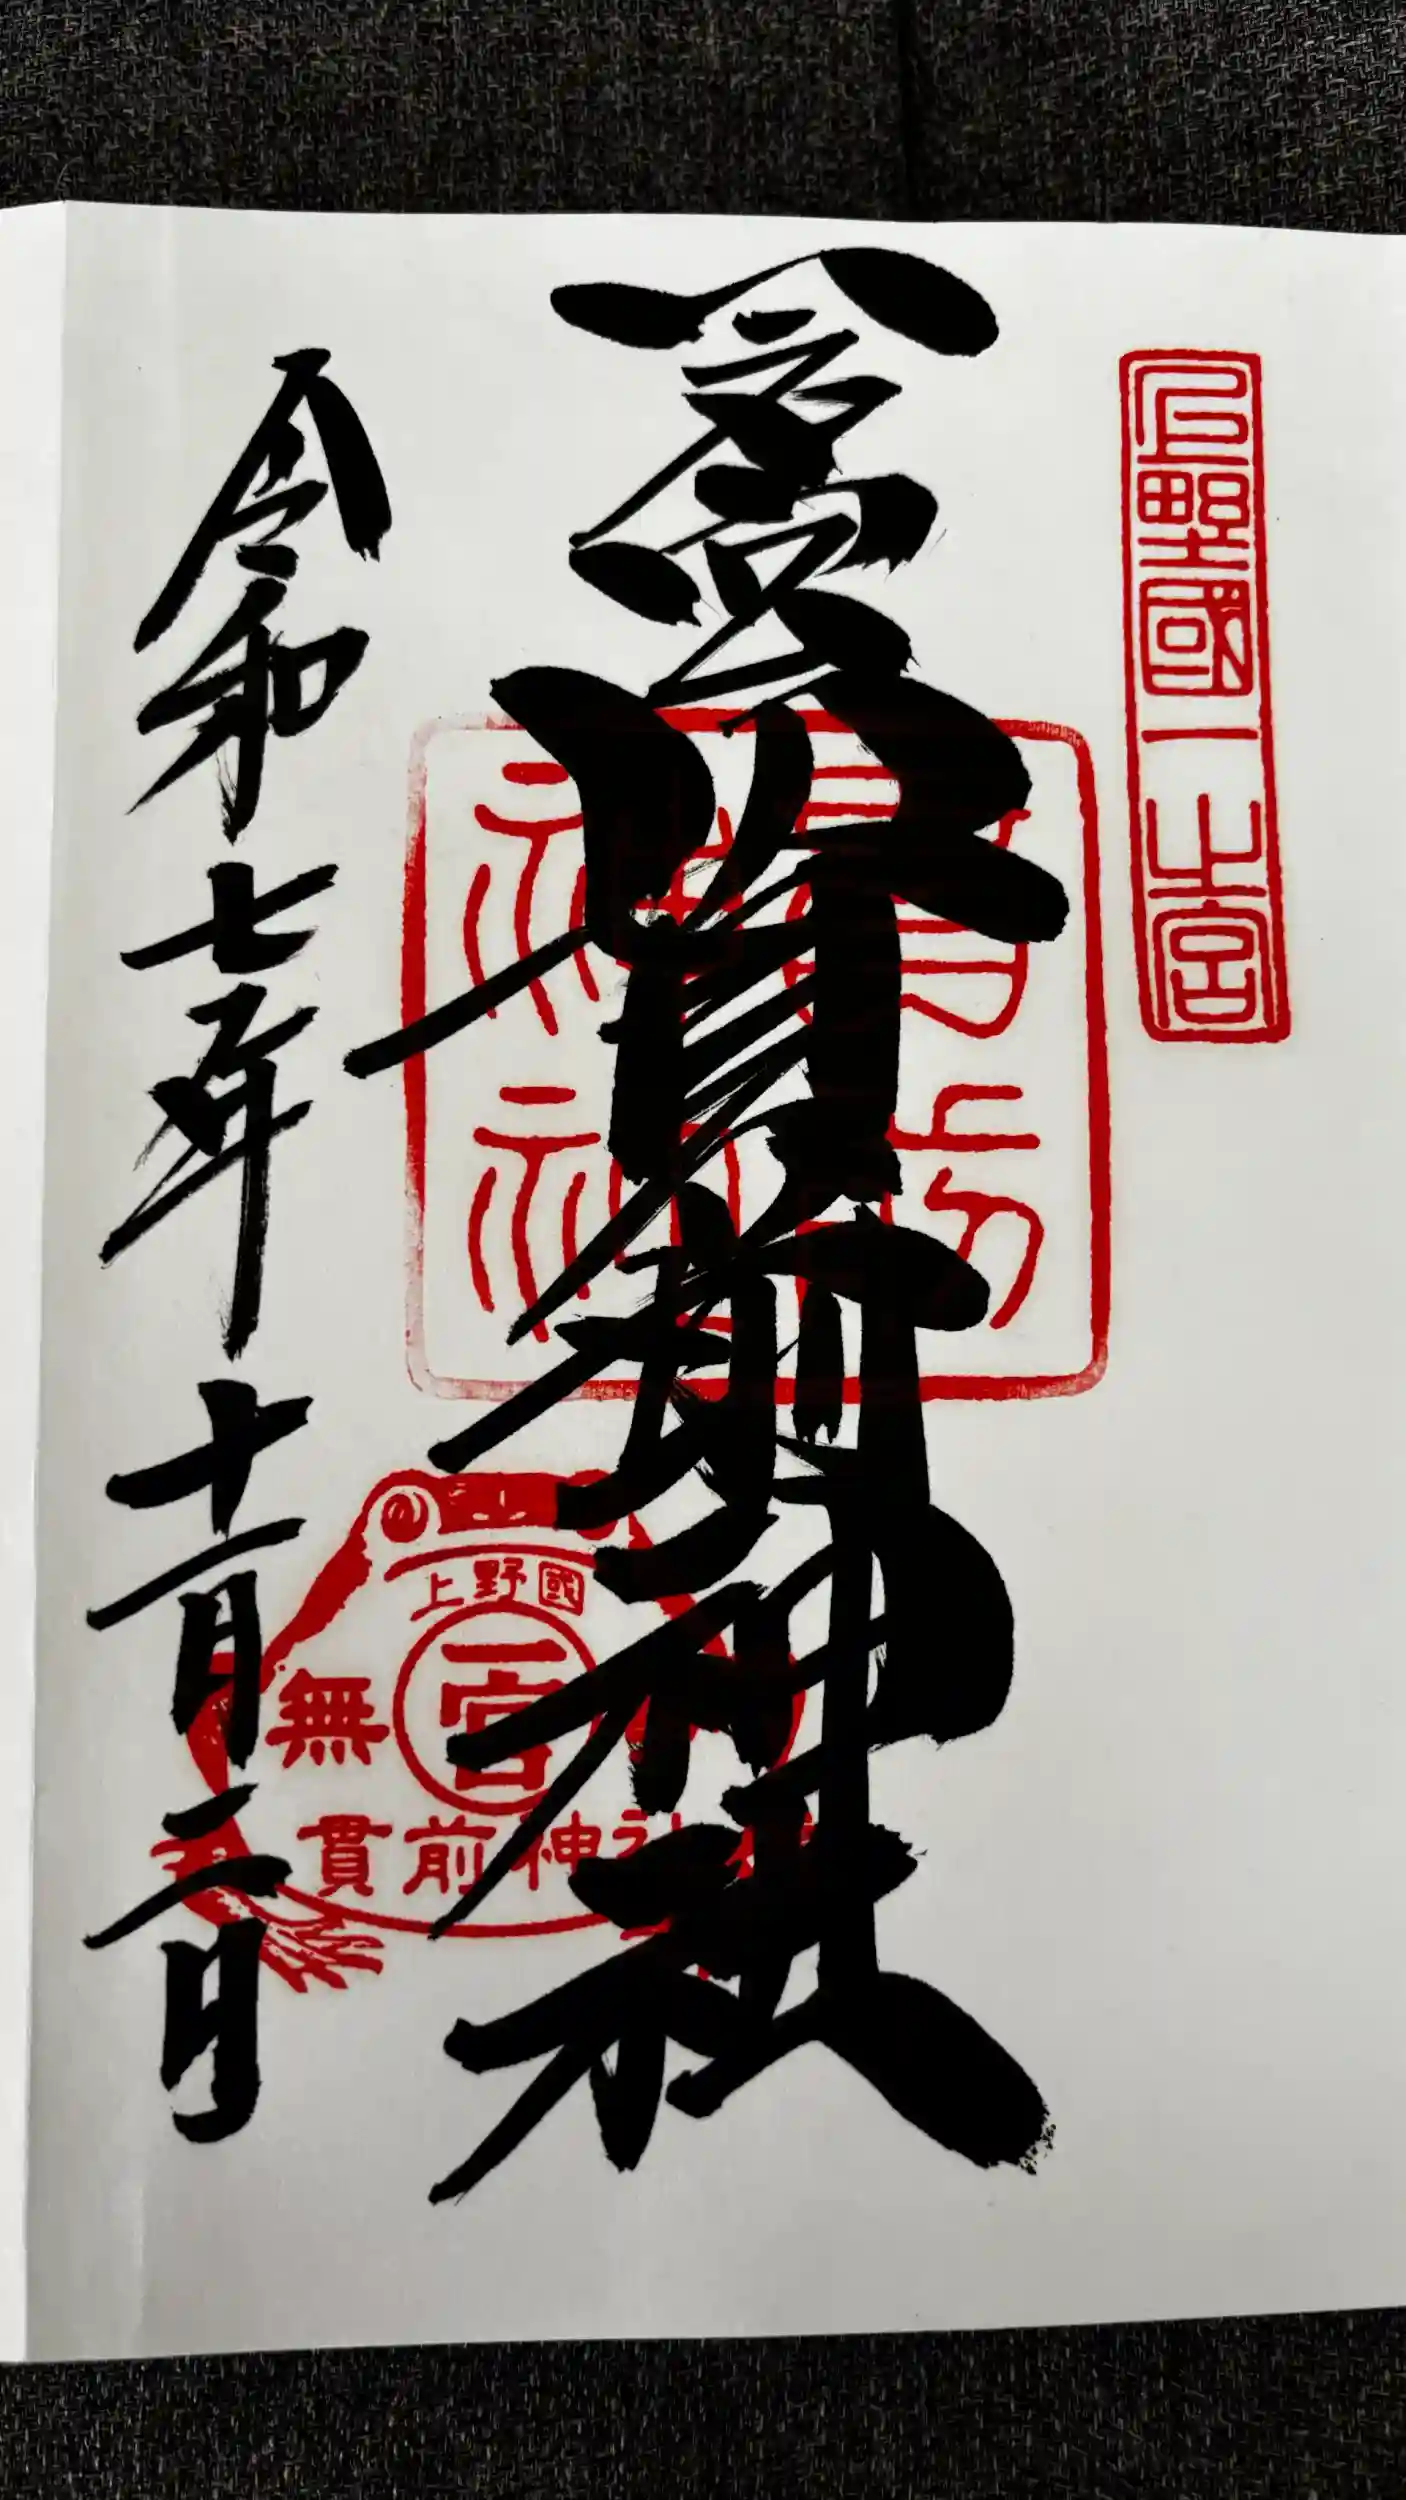 上野國一之宮
一之宮貫前神社
貫前
神社
令和七年十一月二日
上野國
一宮
無
貫前神社